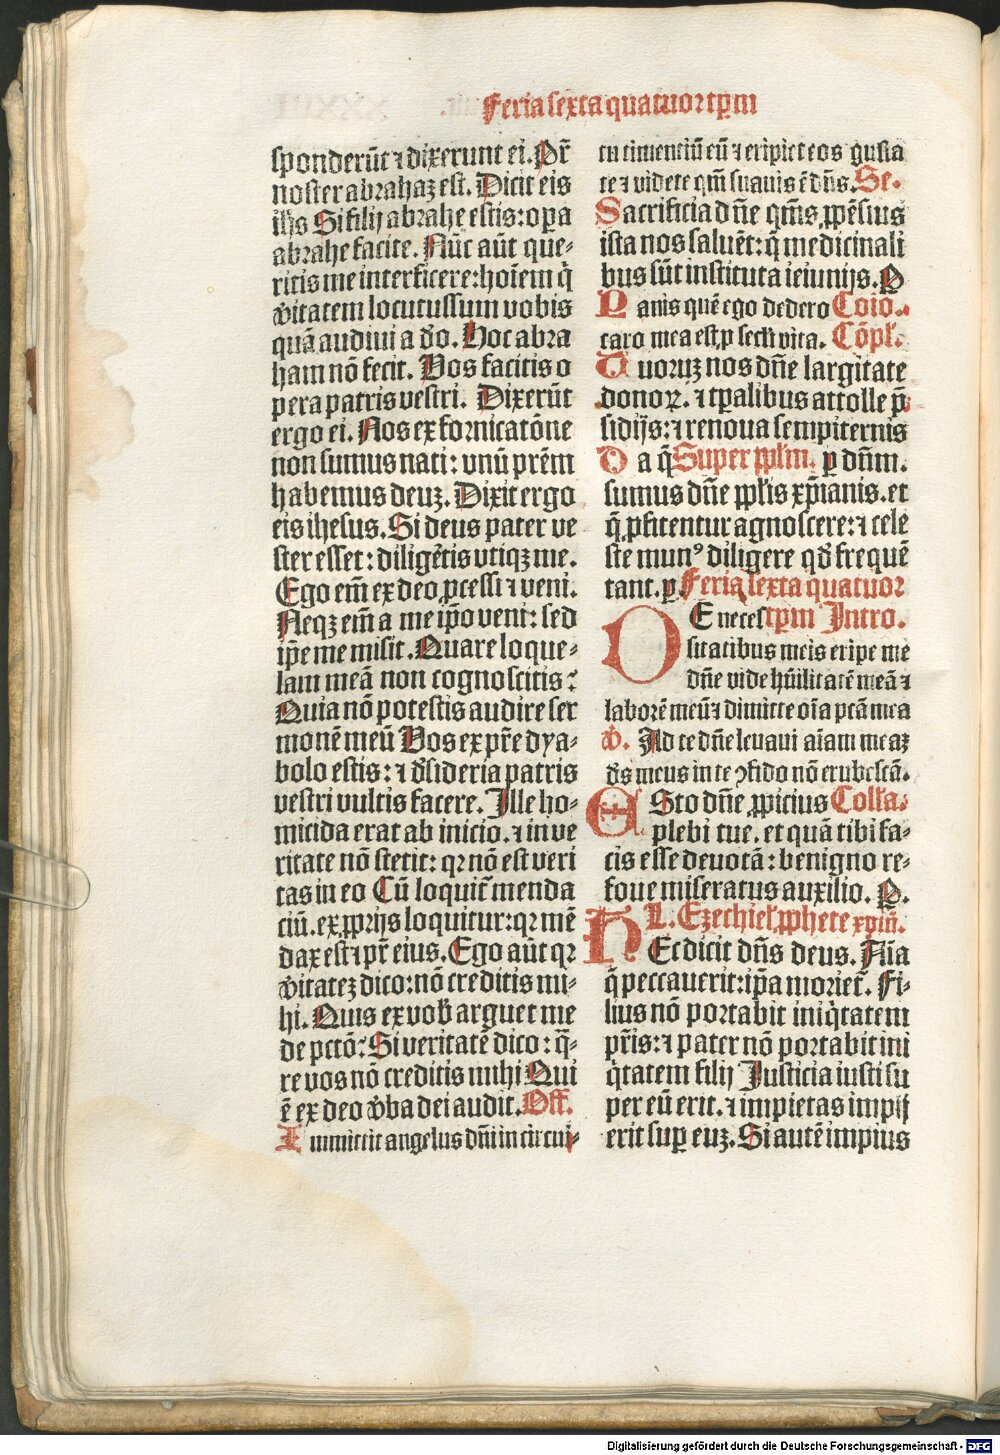 Feria sexta quatuor tp̄m
sponderūt ⁊ dixerunt ei. Pr̄
noster abrahaz est. Dicit eis
ih̄s Si filij abrahe estis: oꝑa
abrahe facite. Nūc aūt que-
ritis me interficere: hoīem q̄
v̓itatem locutus sum vobis
quā audiui a d̓o. Hoc abra
ham nō fecit. Vos facitis o
pera patris vestri. Dixerūt
ergo ei. Nos ex fornicatōne
non sumus nati: vnū prēm
habemus deuz. Dixit ergo
eis ihesus. Si deus pater ve
ster esset: diligētis vtiqꝫ me.
Ego em̄ ex deo ꝓcessi ⁊ veni.
Neqꝫ em̄ a me ip̄o veni: sed
ip̄e me misit. Quare loque-
lam meā non cognoscitis:
Quia nō potestis audire ser
monē meū Vos ex pr̄e dya-
bolo estis: ⁊ d̓sideria patris
vestri vultis facere. Ille ho-
micida erat ab inicio. ⁊ in ve
ritate nō stetit: qꝛ nō est veri
tas in eo Cū loquit᷑ menda
ciū. ex ꝓprijs loquitur: qꝛ mē
dax est ⁊ pr̄ eius. Ego aūt qꝛ
v̓itatez dico: nō creditis mi-
hi. Quis ex vob̓ arguet me
de pctō: Si veritatē dico: q̄-
re vos nō creditis mihi Qui
ē ex deo v̓ba dei audit. Off.
Immittit angelus dn̄i in circui-
tu timentiū eū ⁊ eripiet eos gusta
te ⁊ videte qm̄ suauis ē dn̄s. Se.
Sacrificia dn̄e qm̄s ꝓpēsius
ista nos saluēt: q̄ medicinali
bus sūt instituta ieiunijs. P
Panis quē ego dedero Coīo.
caro mea est ꝓ secl̓i vita. Cōpl̓.
Tuoruz nos dn̄e largitate
donoꝝ. ⁊ tp̄alibus attolle p̄
sidijs: ⁊ renoua sempiternis
Da q̄ Super ppl̓m. ꝑ dn̄m.
sumus dn̄e ppl̓is xp̄ianis. et
q̄ ꝓfitentur agnoscere: ⁊ cele
ste munꝰ diligere qd̓ frequē
tant. ꝑ. Feria sexta quatuor
DE neces tp̄m Intro.
sitatibus meis eripe me
dn̄e vide hūilitatē meā ⁊
laborē meū ⁊ dimitte oīa pctā mea
v̓. Ad te dn̄e leuaui aīam meaz
d̓s meus in te ꝯfido nō erubescā.
ESto dn̄e ꝓpicius Coll̓a.
plebi tue. et quā tibi fa-
cis esse deuotā: benigno re-
foue miseratus auxilio. P.
L. Ezechiel̓ ꝓphete xviij.
HEc dicit dn̄s deus. Aīa
q̄ peccauerit: ip̄a moriet᷑. Fi-
lius nō portabit iniq̄tatem
pr̄is: ⁊ pater nō portabit ini
q̄tatem filij Justicia iusti su
per eū erit. ⁊ impietas impij
erit suꝑ euz. Si autē impius
Digitalisierung gefördert durch die Deutsche Forschungsgemeinschaft - DFG